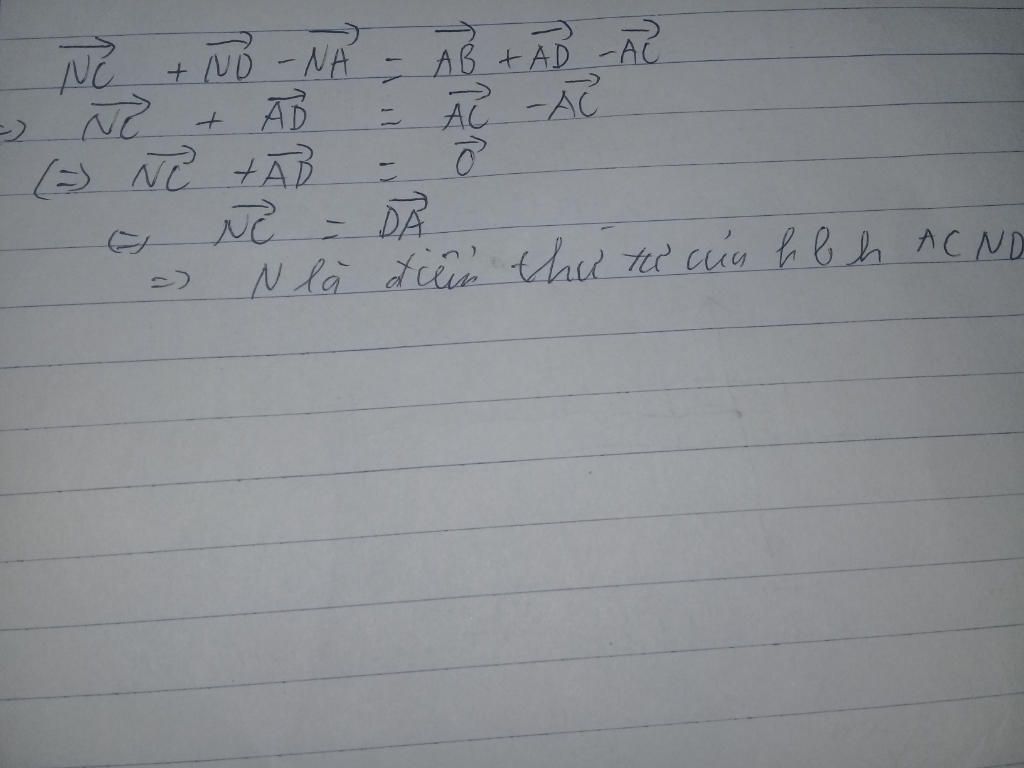 $\overrightarrow{NC} + \overrightarrow{ND} - \overrightarrow{NA} = \overrightarrow{AB} + \overrightarrow{AD} - \overrightarrow{AC}$
$\Rightarrow \overrightarrow{NC} + \overrightarrow{AD} = \overrightarrow{AC} - \overrightarrow{AC}$
$\Leftrightarrow \overrightarrow{NC} + \overrightarrow{AD} = \vec{0}$
$\Leftrightarrow \overrightarrow{NC} = \overrightarrow{DA}$
$\Rightarrow$ N là điểm thứ tư của h b h ACND